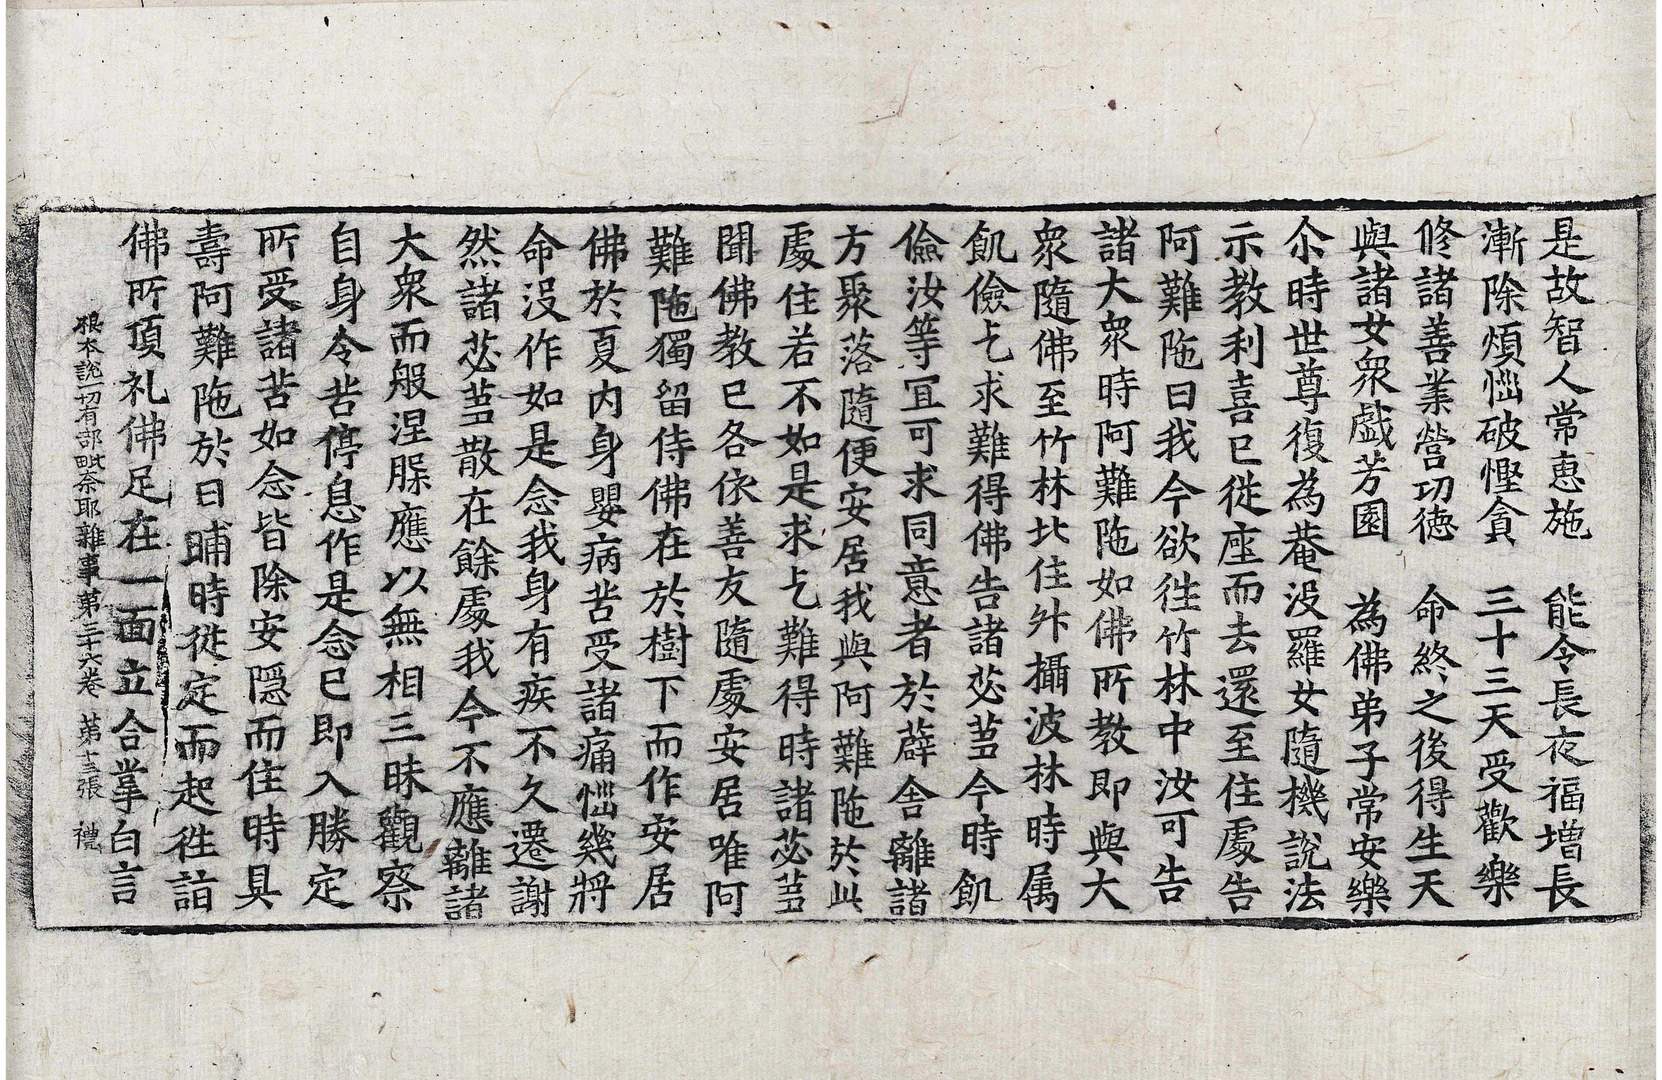 是故智人常惠施　能令長夜福增長
漸除煩惱破慳貪　三十三天受歡樂
修諸善業營功德　命終之後得生天
與諸女衆戱芳園　為佛弟子常安樂
尒時世尊復為菴没羅女隨機說法
示教利喜已從座而去還至住處告
阿難陁曰我今欲往竹林中汝可告
諸大衆時阿難陁如佛所教即與大
衆隨佛至竹林北住外攝波林時属
飢儉乞求難得佛告諸苾蒭今時飢
儉汝等冝可求同意者於薜舍離諸
方聚落隨便安居我與阿難陁於此
處住若不如是求乞難得時諸苾蒭
聞佛教已各依善友隨處安居唯阿
難陁獨留侍佛在於樹下而作安居
佛於夏內身嬰病苦受諸痛惱幾將
命沒作如是念我身有疾不久遷謝
然諸苾蒭散在餘處我今不應離諸
大衆而般涅槃應以無相三昧觀察
自身令苦停息作是念已即入勝定
所受諸苦如念皆除安隱而住時具
壽阿難陁於日晡時從定而起往詣
佛所頂礼佛足在一面立合掌白言
根本說一切有部毗奈耶雜事第三十六卷　第十三張　禮